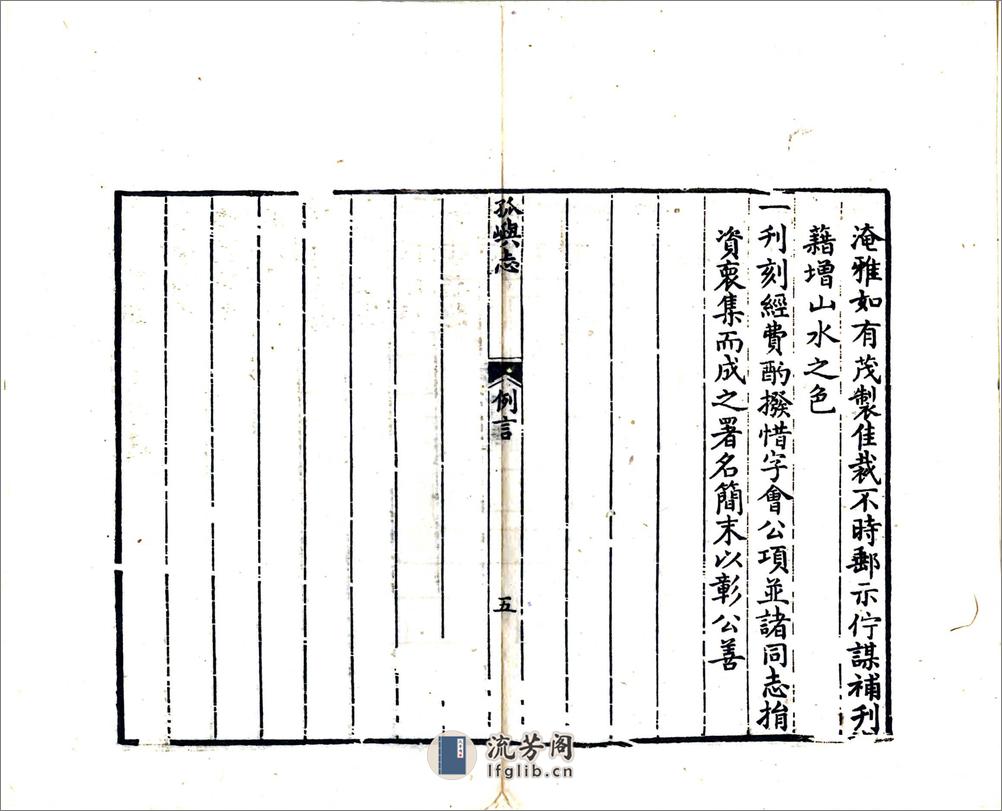 淹雅如有茂製佳裁不時郵示佇謀補刋
藉增山水之色
一刋刻經費酌撥惜字會公項並諸同志捐
資裒集而成之署名簡末以彰公善
孤嶼志
例言
五
流芳阁
lfglib.cn